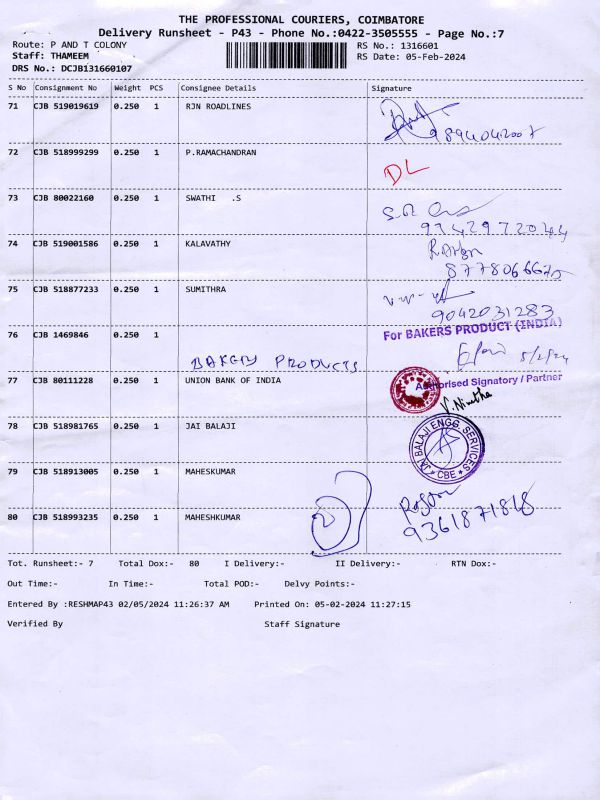 THE PROFESSIONAL COURIERS, COIMBATORE
Delivery Runsheet - P43 - Phone No.:0422-3505555 - Page No.:7
Route: P AND T COLONY
RS No.: 1316601
Staff: THAMEEM
RS Date: 05-Feb-2024
DRS No.: DCJB131660107
S No Consignment No Weight PCS Consignee Details Signature
71 CJB 519019619 0.250 1 RJN ROADLINES
9894042007
72 CJB 518999299 0.250 1 P.RAMACHANDRAN
DL
73 CJB 80022160 0.250 1 SWATHI .S
74 CJB 519001586 0.250 1 KALAVATHY
8778066675
75 CJB 518877233 0.250 1 SUMITHRA
9042031283
For BAKERS PRODUCT (INDIA)
76 CJB 1469846 0.250 1
5/2/24
BAKERY PRODUCTS
Authorised Signatory / Partner
77 CJB 80111228 0.250 1 UNION BANK OF INDIA
V. Nivetha
78 CJB 518981765 0.250 1 JAI BALAJI
JAI BALAJI ENGG SERVICES
CBE
79 CJB 518913005 0.250 1 MAHESKUMAR
9361871818
80 CJB 518993235 0.250 1 MAHESHKUMAR
Tot. Runsheet:- 7 I Total Dox:- 80 I Delivery:- II Delivery:- RTN Dox:-
Out Time:- In Time:- Total POD:- Delvy Points:-
Entered By :RESHMAP43 02/05/2024 11:26:37 AM Printed On: 05-02-2024 11:27:15
Verified By Staff Signature